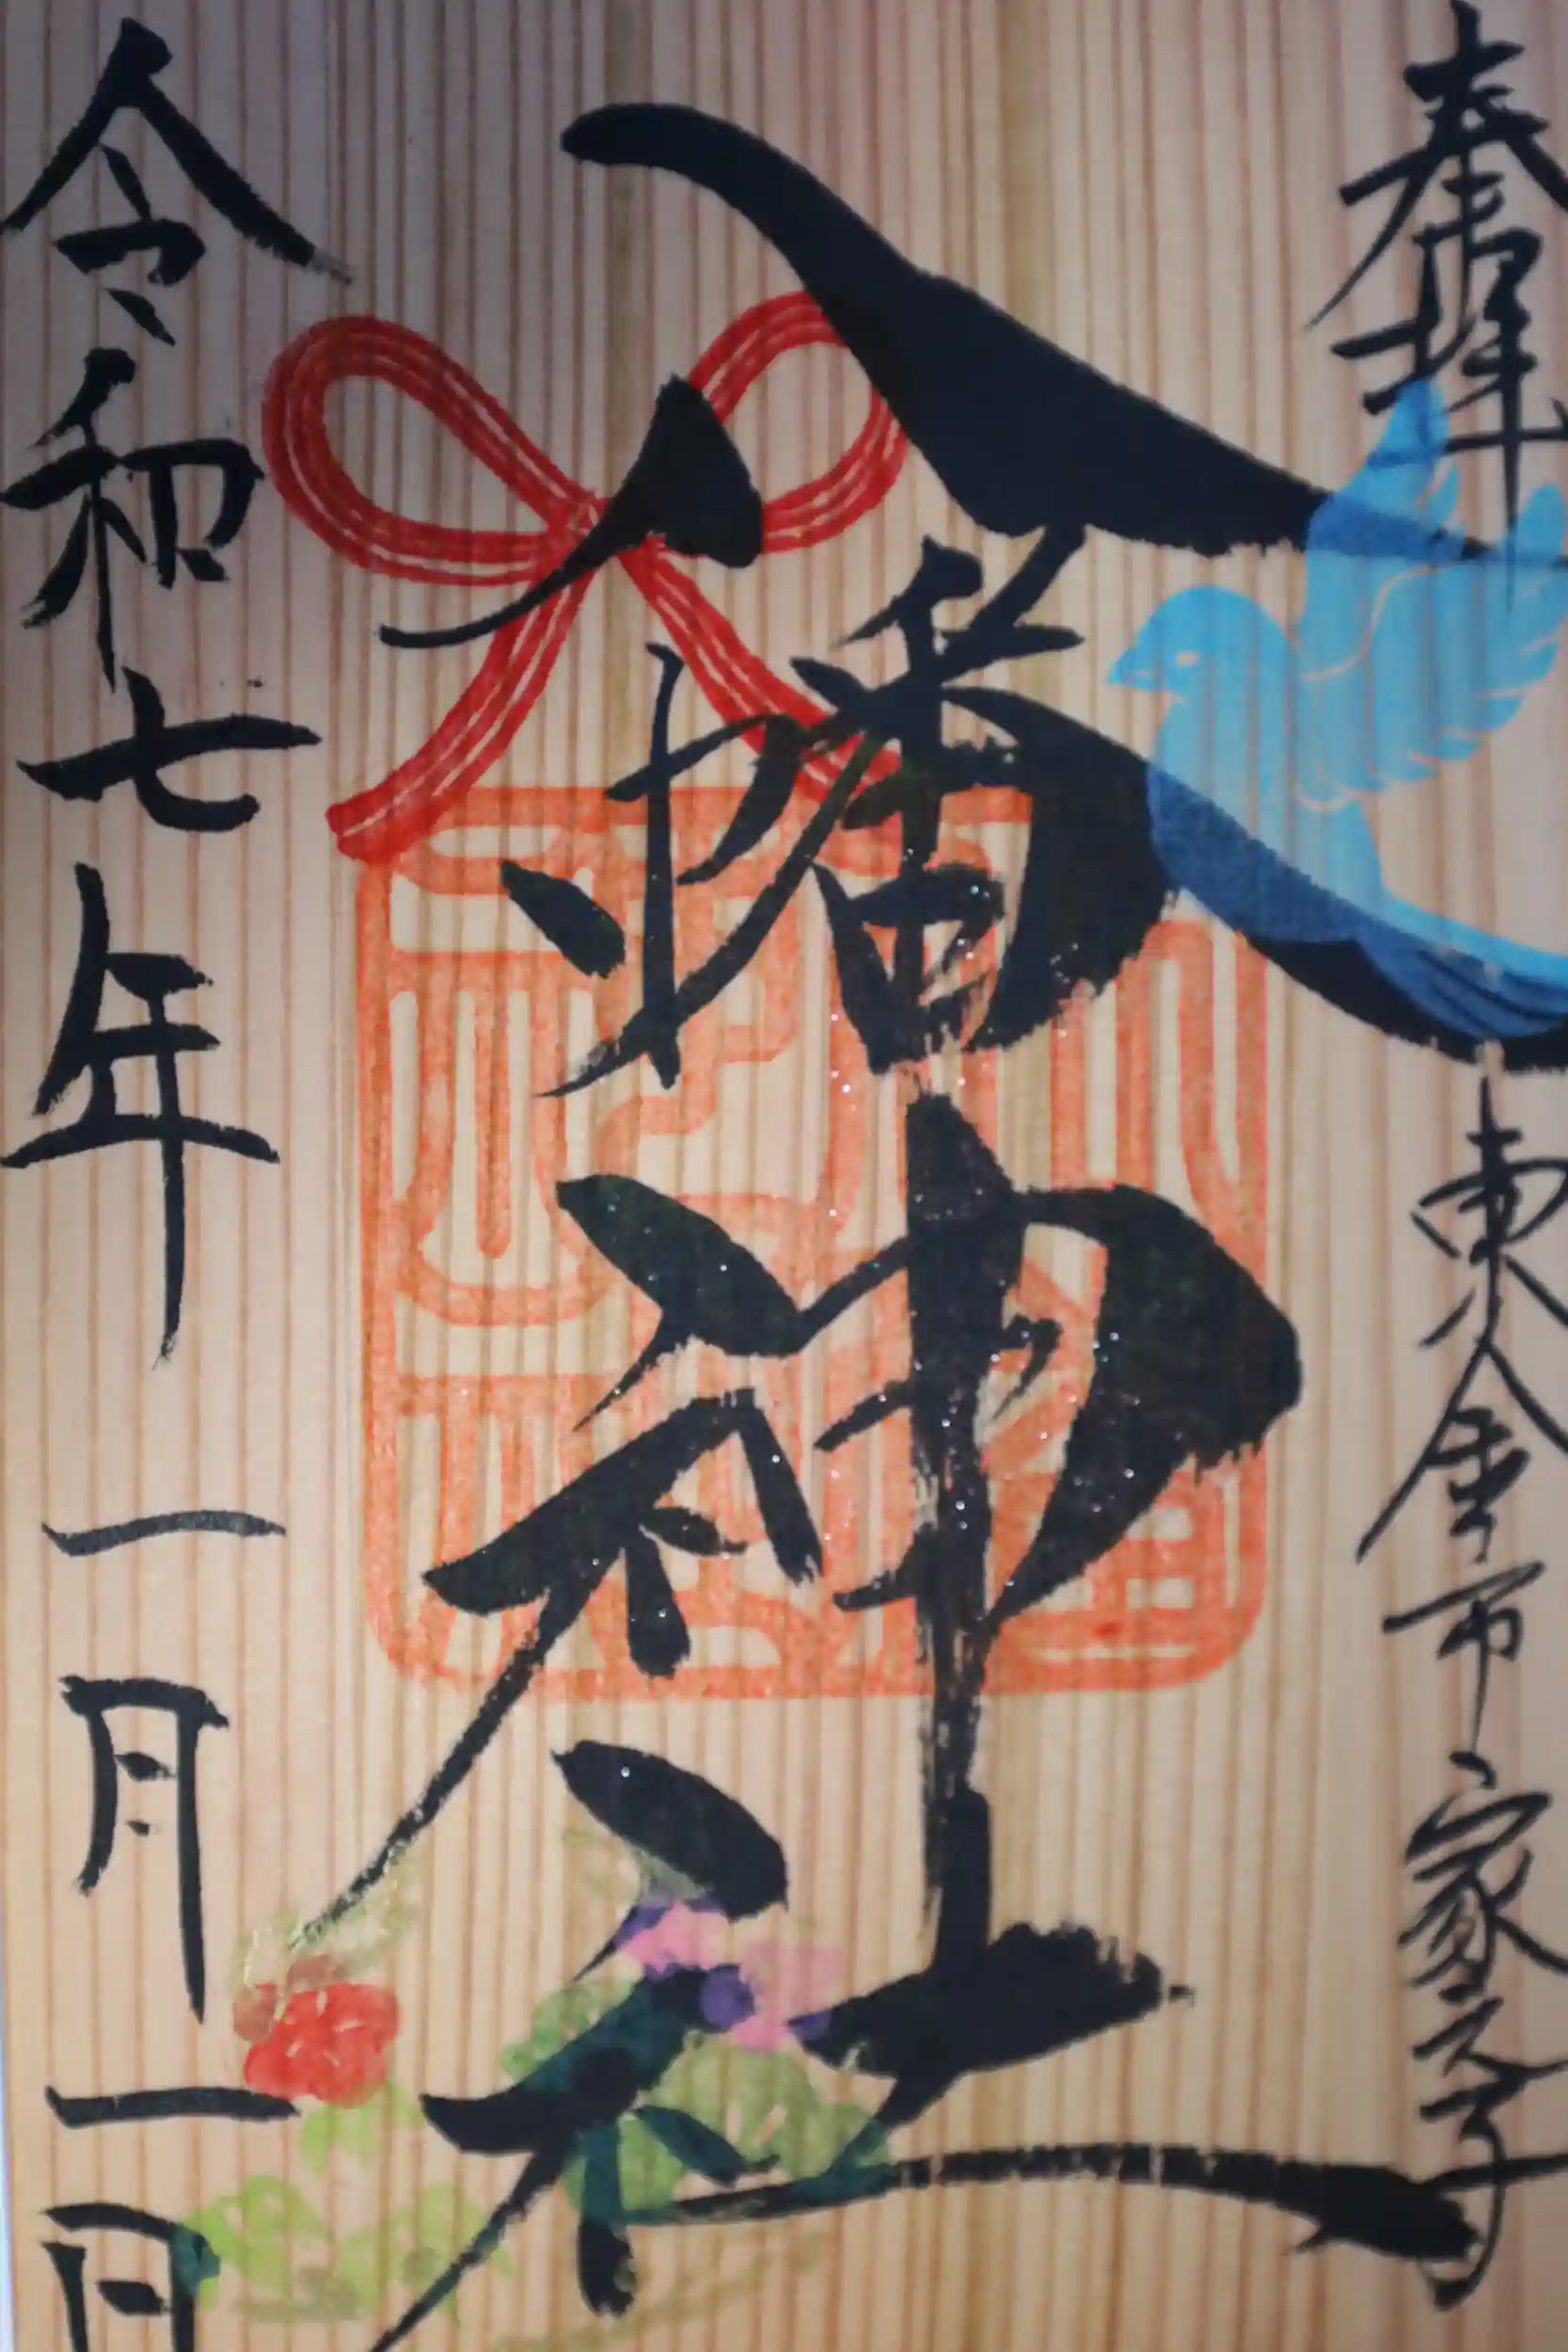 奉拝
東金市家之子
八幡神社
令和七年一月一日